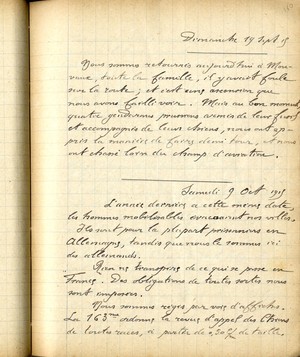 Dimanche 19 Sept 15
Nous sommes retournés aujourd'hui à Mou-
vaux, toute la famille, il y avait foule
sur la route; et c'est une ascension que
nous avons failli voir. Mais au bon moment
quatre gendarmes prussiens armés de leur fusil
et accompagnés de leurs chiens, nous ont ap-
pris la manière de faire demi tour, et nous
ont chassé loin du champ d'aviation.
Samedi 9 Oct 1915
L'année dernière à cette même date
les hommes mobilisables évacuaient nos villes.
Ils sont pour la plupart prisonniers en
Allemagne, tandis que nous le sommes ici
des allemands.
Rien ne transpire de ce qui se passe en
France. Des obligations de toutes sortes nous
sont imposées.
Nous sommes régis par voie d'affiches.
La 163me ordonne la revue d'appel des chiens
de toutes races, à partir de de taille.